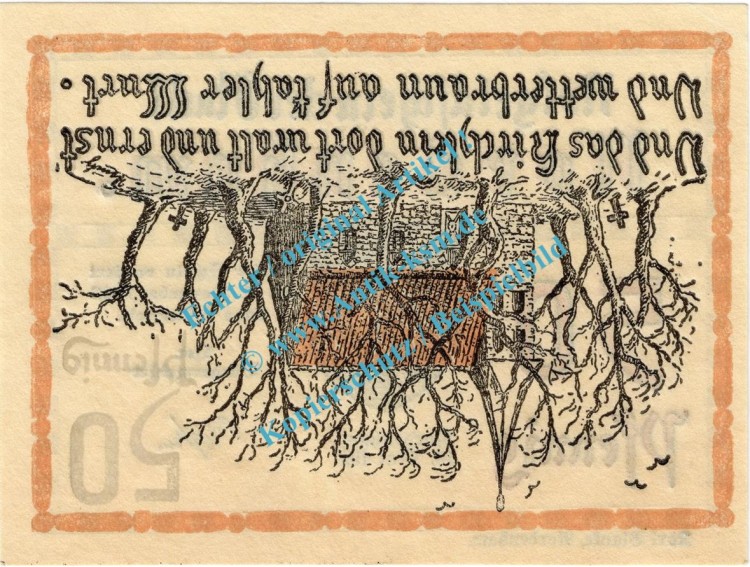 Und das Kirchlein dort uralt und ernst
Und wetterbraun auf kahler Wurt.
Echter / original Artikel !
© www.Antik-ksm.de
Kopierschutz / Beispielbild
50
Pfennig